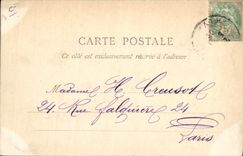 CARTE POSTALE
Ce côté est exclusivement réservé à l'adresse
Madame H. Creusot
24. Rue Falguière 24
Paris